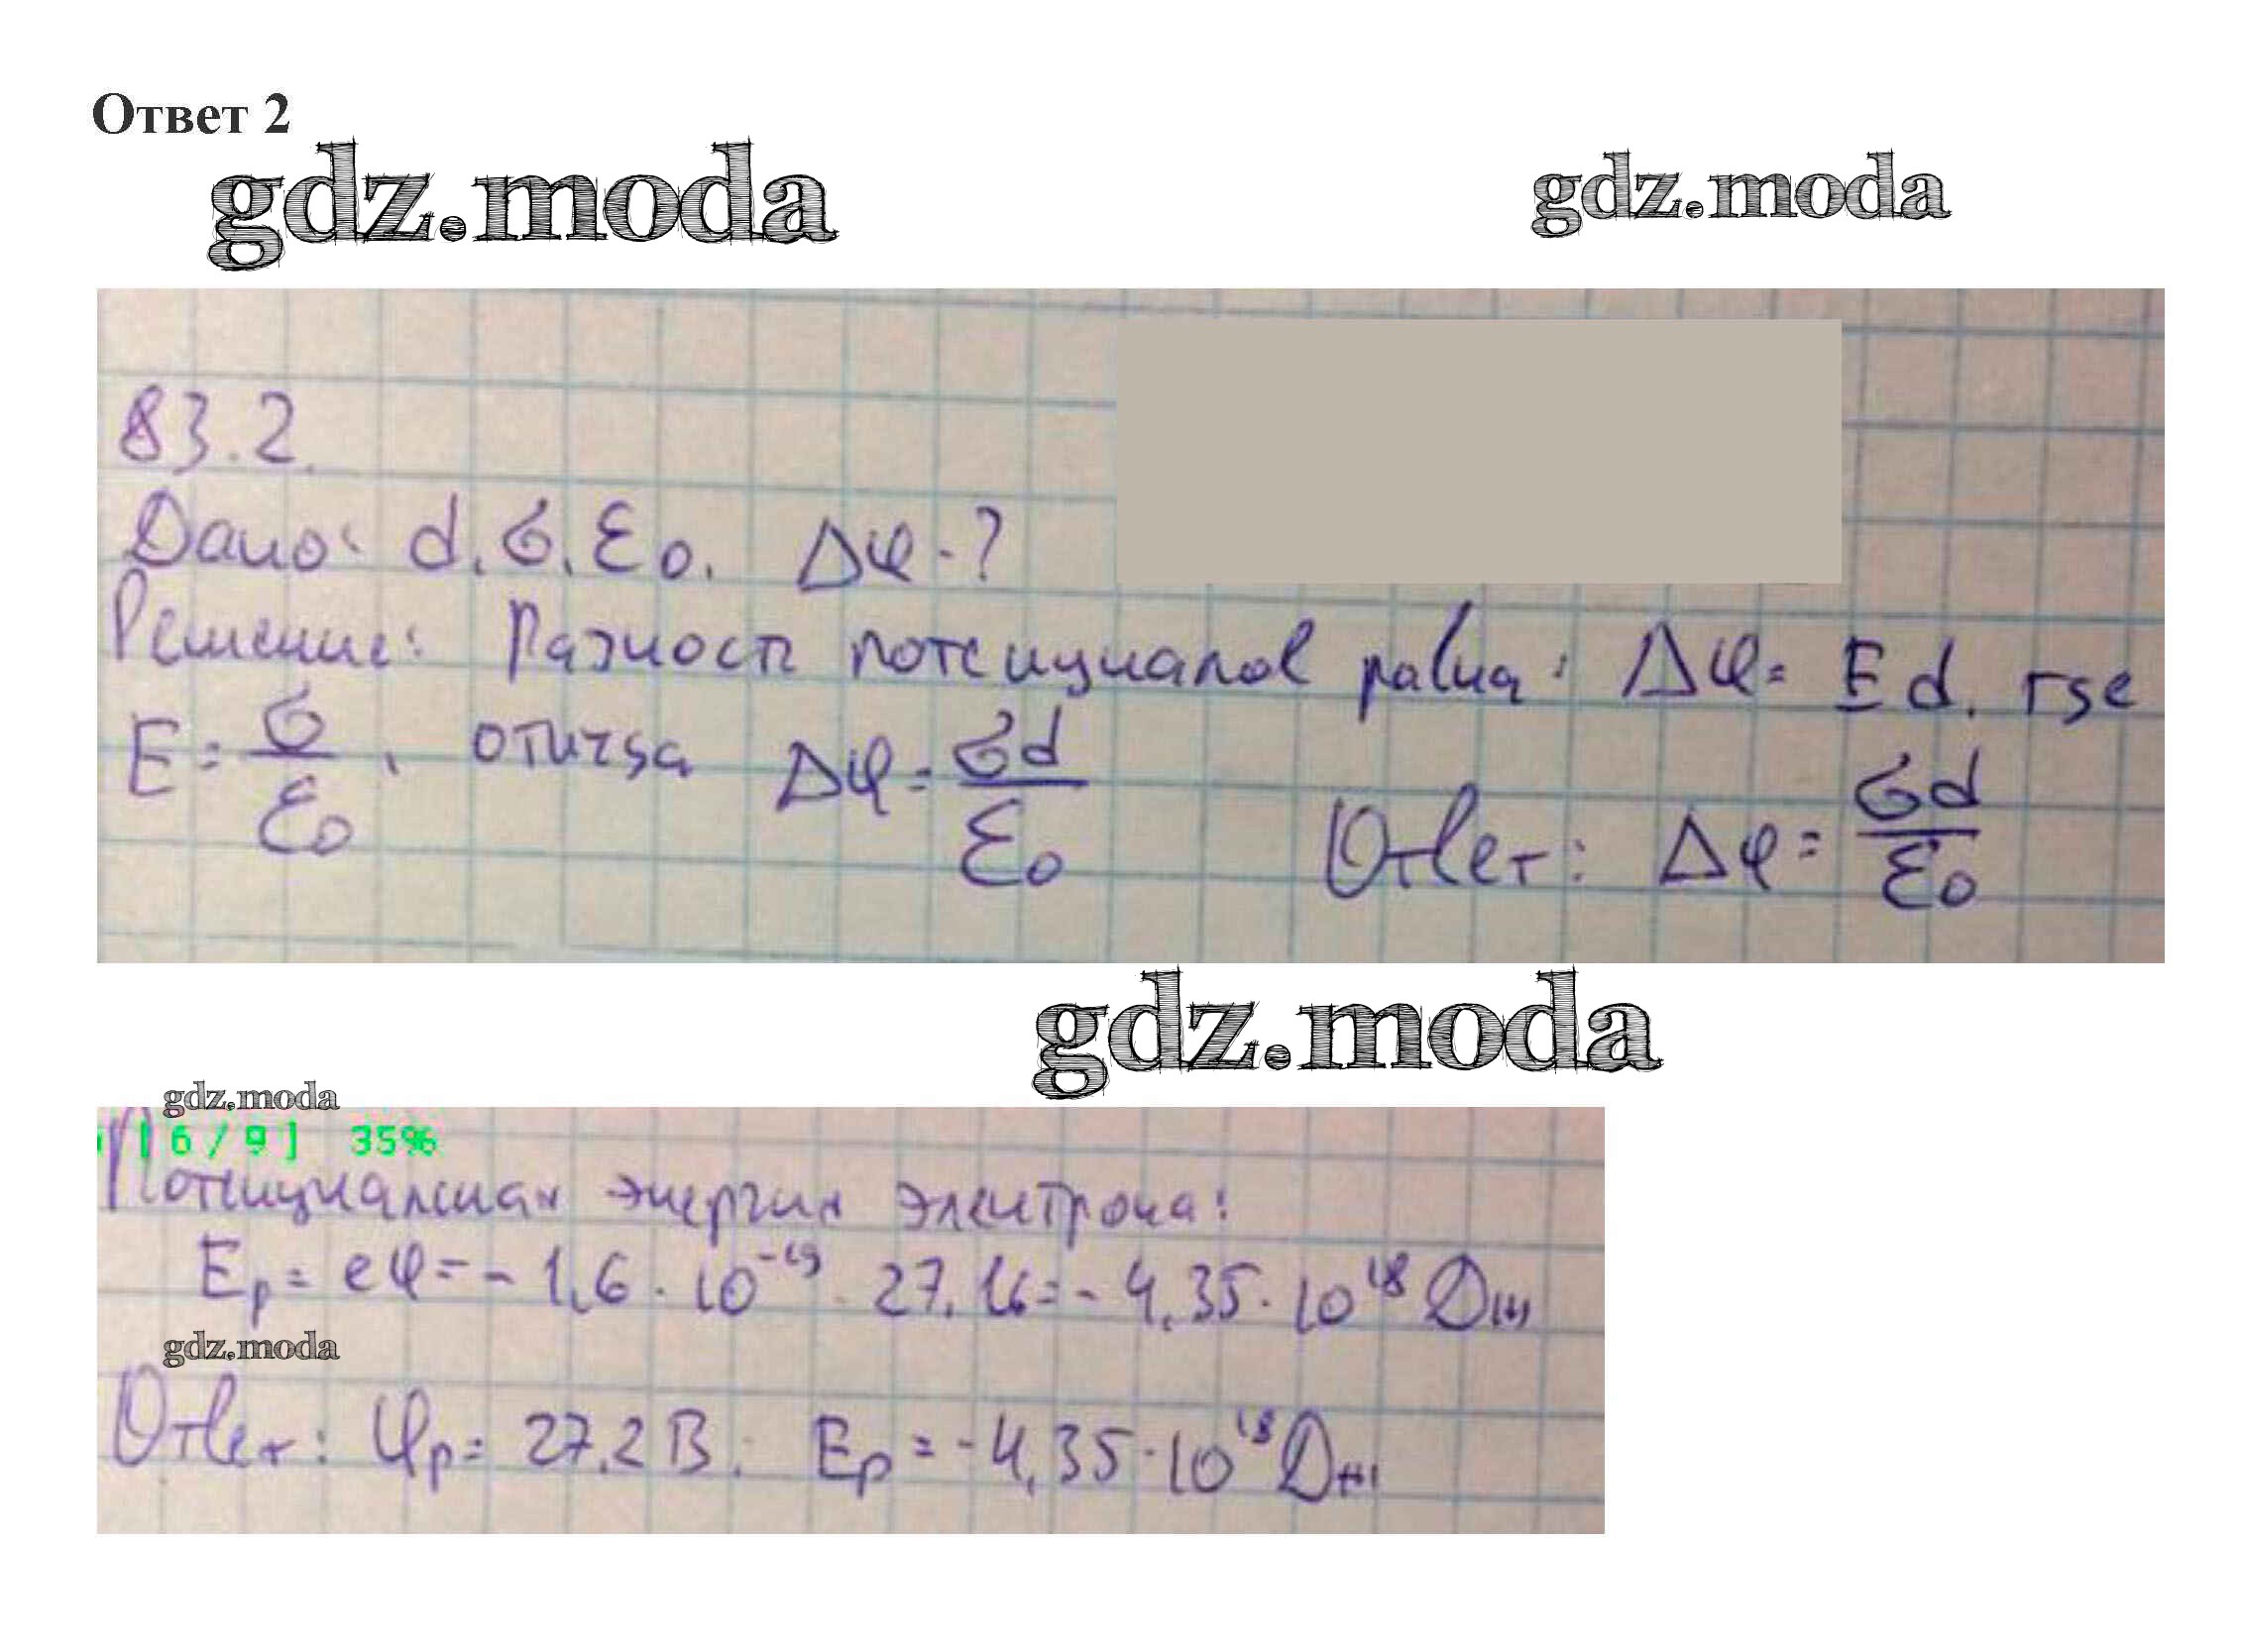 Ответ 2
gdz.moda
gdz.moda
83.2.
Дано: d, σ, ε₀. Δφ - ?
Решение: Разность потенциалов равна: Δφ = Ed, где
E = σ/ε₀, отсюда Δφ = σd/ε₀ Ответ: Δφ = σd/ε₀
gdz.moda
gdz.moda
[6/9] 35%
Потенциальная энергия электрона:
Eₚ = eφ = - 1,6 · 10⁻¹⁹ · 27,16 = - 4,35 · 10¹⁸ Дж
gdz.moda
Ответ: φₚ = 27,2 В; Eₚ = - 4,35 · 10¹⁸ Дж